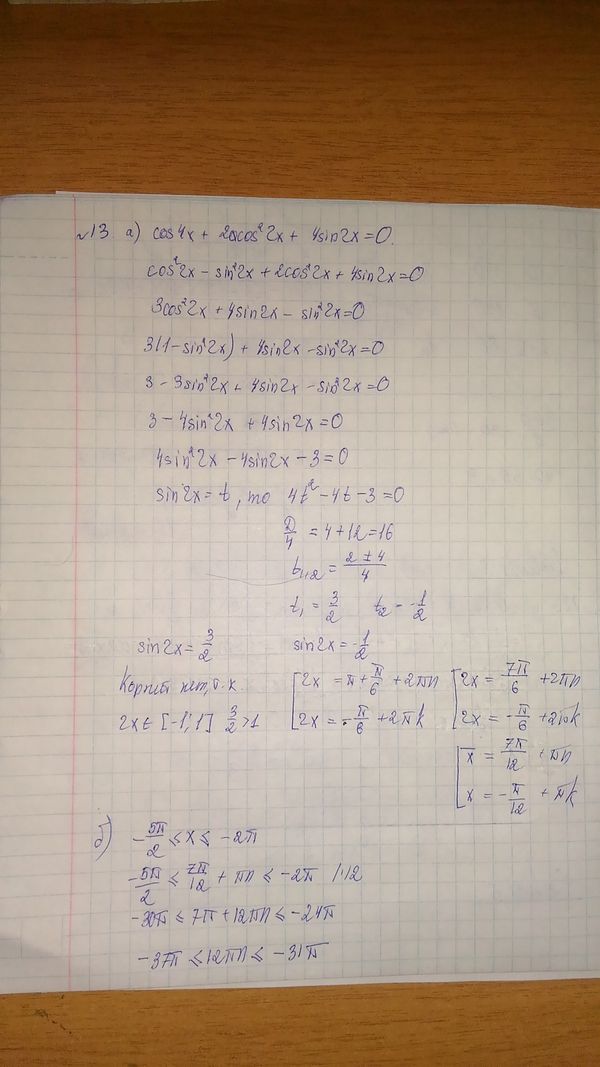 №13 а) cos4x + 2cos²2x + 4sin2x = 0.
cos²2x - sin²2x + 2cos²2x + 4sin2x = 0
3cos²2x + 4sin2x - sin²2x = 0
3(1 - sin²2x) + 4sin2x - sin²2x = 0
3 - 3sin²2x + 4sin2x - sin²2x = 0
3 - 4sin²2x + 4sin2x = 0
4sin²2x - 4sin2x - 3 = 0
sin2x = t, то 4t² - 4t - 3 = 0
D/4 = 4 + 12 = 16
t1,2 = (2 ± 4)/4
t₁ = 3/2 t₂ = -1/2
sin2x = 3/2 sin2x = -1/2
Корней нет, т.к. [2x = π + π/6 + 2πn [2x = 7π/6 + 2πn
2x ∈ [-1; 1] 3/2 > 1 [2x = -π/6 + 2πk [2x = -π/6 + 2πk
[x = 7π/12 + πn
[x = -π/12 + πk
б) -5π/2 ≤ x ≤ -2π
-5π/2 ≤ 7π/12 + πn ≤ -2π /·12
-30π ≤ 7π + 12πn ≤ -24π
-37π ≤ 12πn ≤ -31π